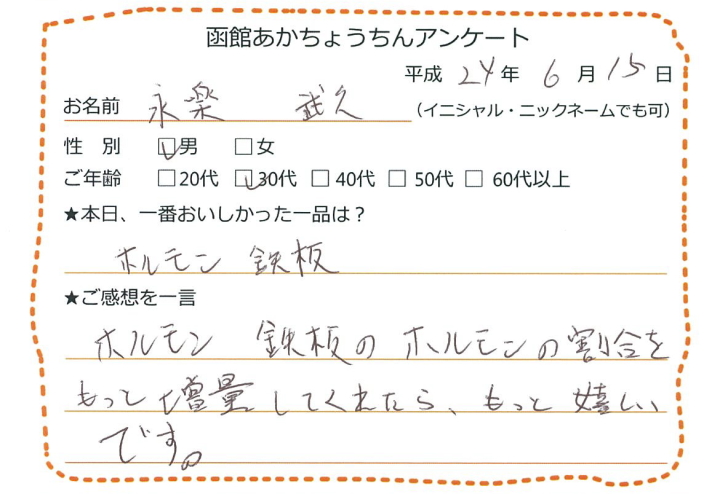 函館あかちょうちんアンケート
平成 24年 6月 15日
お名前 永楽 武久 (イニシャル・ニックネームでも可)
性 別 □男 □女
ご年齢 □20代 □30代 □40代 □50代 □60代以上
★本日、一番おいしかった一品は?
ホルモン 鉄板
★ご感想を一言
ホルモン 鉄板のホルモンの割合を
もっと増量してくれたら、もっと嬉しい
です。